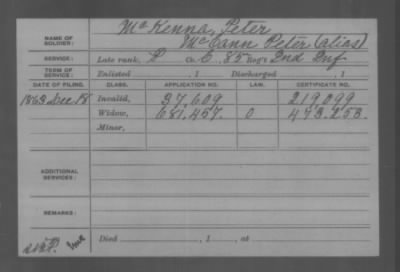 McKenna, Peter
NAME OF SOLDIER: McCann Peter (alias)
SERVICE: Late rank, P Co. E, 85 Reg't 2nd Inf
TERM OF SERVICE: Enlisted , 1 Discharged , 1
DATE OF FILING. CLASS. APPLICATION NO. LAW. CERTIFICATE NO.
1863 Dec 18 Invalid, 37,609 219,099
Widow, 681,457 0 473,253.
Minor,
ADDITIONAL SERVICES:
REMARKS:
Died , 1 , at